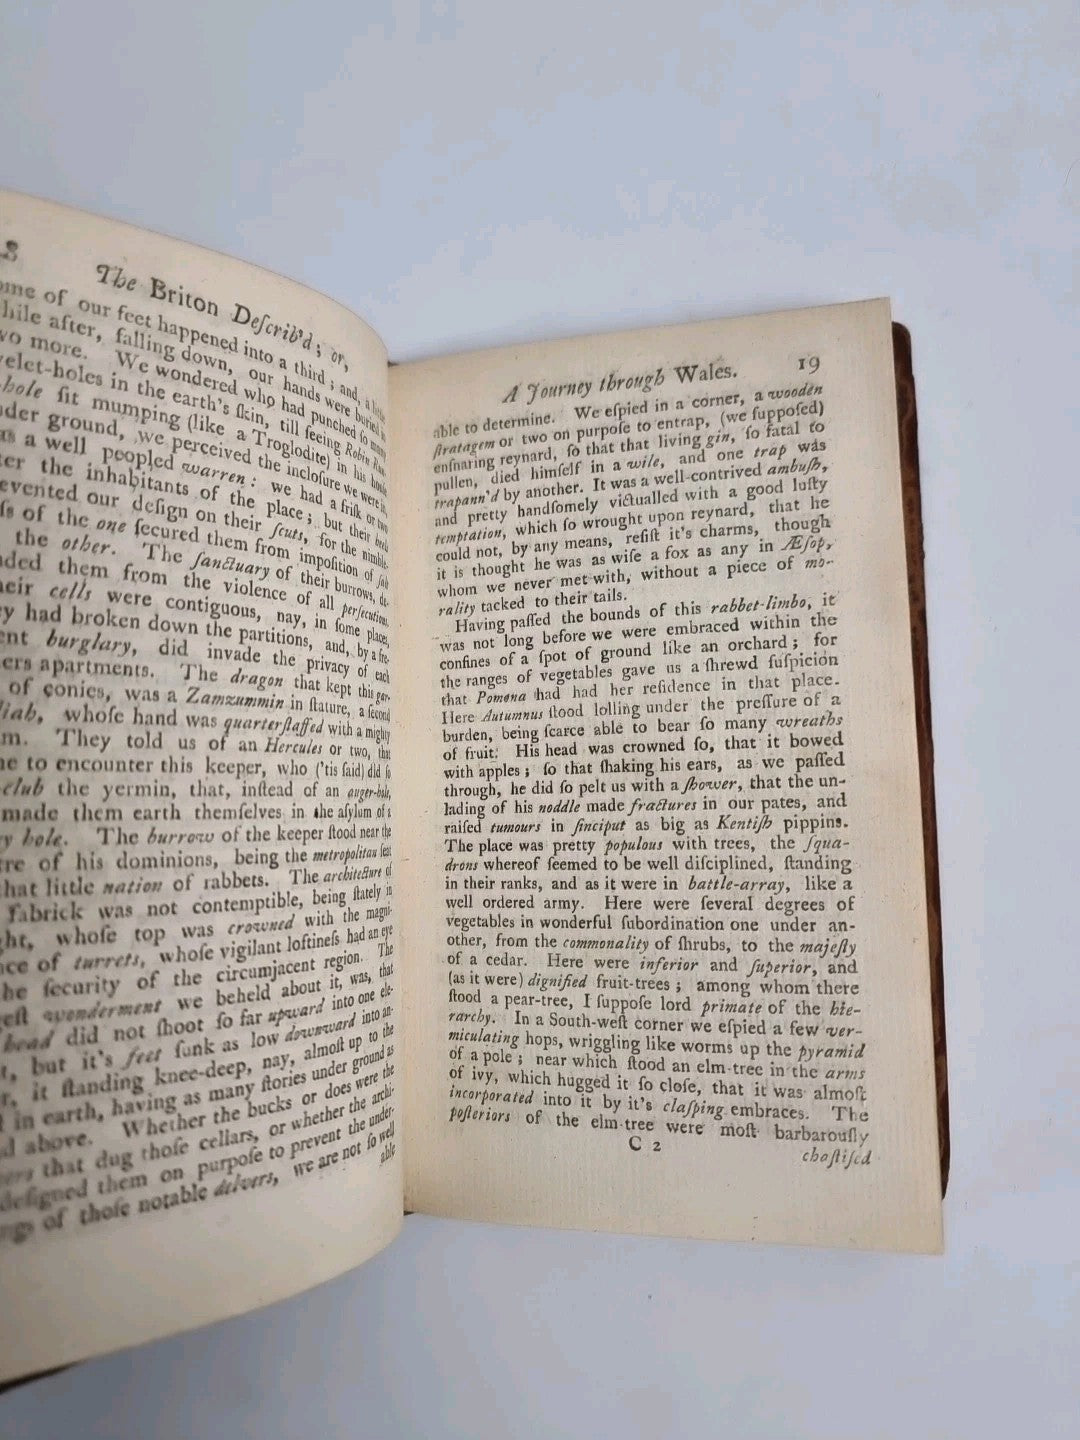 The Briton Deſcrib'd; or,
ome of our feet happened into a third; and, a little
hile after, falling down, our hands were buried in
wo more. We wondered who had punched ſo many
yelet-holes in the earth's ſkin, till ſeeing Robin Run-
hole ſit mumping (like a Troglodite) in his houſe
nder ground, we perceived the incloſure we were in,
as a well peopled warren: we had a friſk or two
ter the inhabitants of the place; but their heels
evented our deſign on their ſcuts, for the nimble-
ſs of the one ſecured them from impoſition of ſalt
the other. The ſanctuary of their burrows, de-
nded them from the violence of all perſecutions,
heir cells were contiguous, nay, in ſome places,
ey had broken down the partitions, and, by a fre-
ent burglary, did invade the privacy of each
ers apartments. The dragon that kept this gar-
of conies, was a Zamzummin in ſtature, a ſecond
liah, whoſe hand was quarterſtaffed with a mighty
m. They told us of an Hercules or two, that
me to encounter this keeper, who ('tis ſaid) did ſo
club the vermin, that, inſtead of an auger-hole,
made them earth themſelves in the aſylum of a
ry hole. The burrow of the keeper ſtood near the
tre of his dominions, being the metropolitan ſeat
that little nation of rabbets. The architecture of
fabrick was not contemptible, being ſtately in
ght, whoſe top was crowned with the magni-
nce of turrets, whoſe vigilant loftineſs had an eye
the ſecurity of the circumjacent region. The
eſt wonderment we beheld about it, was, that
head did not ſhoot ſo far upward into one ele-
t, but it's feet ſunk as low downward into an-
r, it ſtanding knee-deep, nay, almoſt up to the
t in earth, having as many ſtories under ground as
d above. Whether the bucks or does were the
ers that dug thoſe cellars, or whether the archi-
deſigned them on purpoſe to prevent the under-
ngs of thoſe notable delvers, we are not ſo well
able
A Journey through Wales. 19
able to determine. We eſpied in a corner, a wooden
ſtratagem or two on purpoſe to entrap, (we ſuppoſed)
enſnaring reynard, ſo that that living gin, ſo fatal to
pullen, died himſelf in a wile, and one trap was
trapann'd by another. It was a well-contrived ambuſh,
and pretty handſomely victualled with a good luſty
temptation, which ſo wrought upon reynard, that he
could not, by any means, reſiſt it's charms, though
it is thought he was as wiſe a fox as any in Æſop,
whom we never met with, without a piece of mo-
rality tacked to their tails.
Having paſſed the bounds of this rabbet-limbo, it
was not long before we were embraced within the
confines of a ſpot of ground like an orchard; for
the ranges of vegetables gave us a ſhrewd ſuſpicion
that Pomona had had her reſidence in that place.
Here Autumnus ſtood lolling under the preſſure of a
burden, being ſcarce able to bear ſo many wreaths
of fruit. His head was crowned ſo, that it bowed
with apples; ſo that ſhaking his ears, as we paſſed
through, he did ſo pelt us with a ſhower, that the un-
lading of his noddle made fractures in our pates, and
raiſed tumours in ſinciput as big as Kentiſh pippins.
The place was pretty populous with trees, the ſqua-
drons whereof ſeemed to be well diſciplined, ſtanding
in their ranks, and as it were in battle-array, like a
well ordered army. Here were ſeveral degrees of
vegetables in wonderful ſubordination one under an-
other, from the commonality of ſhrubs, to the majeſty
of a cedar. Here were inferior and ſuperior, and
(as it were) dignified fruit-trees; among whom there
ſtood a pear-tree, I ſuppoſe lord primate of the hie-
rarchy. In a South-weſt corner we eſpied a few ver-
miculating hops, wriggling like worms up the pyramid
of a pole; near which ſtood an elm-tree in the arms
of ivy, which hugged it ſo cloſe, that it was almoſt
incorporated into it by it's claſping embraces. The
poſteriors of the elm-tree were moſt barbarouſly
C 2
chaſtiſed